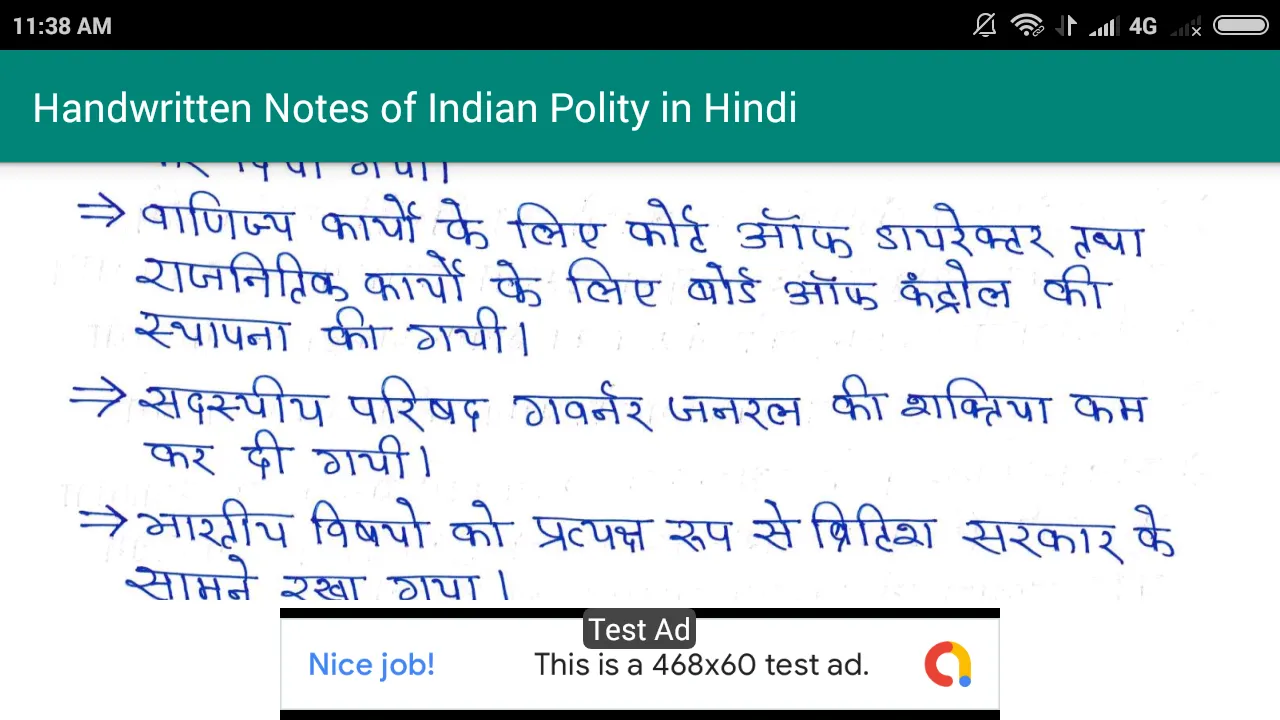 11:38 AM
4G
Handwritten Notes of Indian Polity in Hindi
⇒ वाणिज्य कार्यो के लिए कोर्ट ऑफ डायरेक्टर तथा
राजनितिक कार्यो के लिए बोर्ड ऑफ कंट्रोल की
स्थापना की गयी।
⇒ सदस्यीय परिषद गवर्नर जनरल की शक्तिया कम
कर दी गयी।
⇒ भारतीय विषयो को प्रत्यक्ष रूप से ब्रिटिश सरकार के
सामने रखा गया।
Test Ad
Nice job! This is a 468x60 test ad.